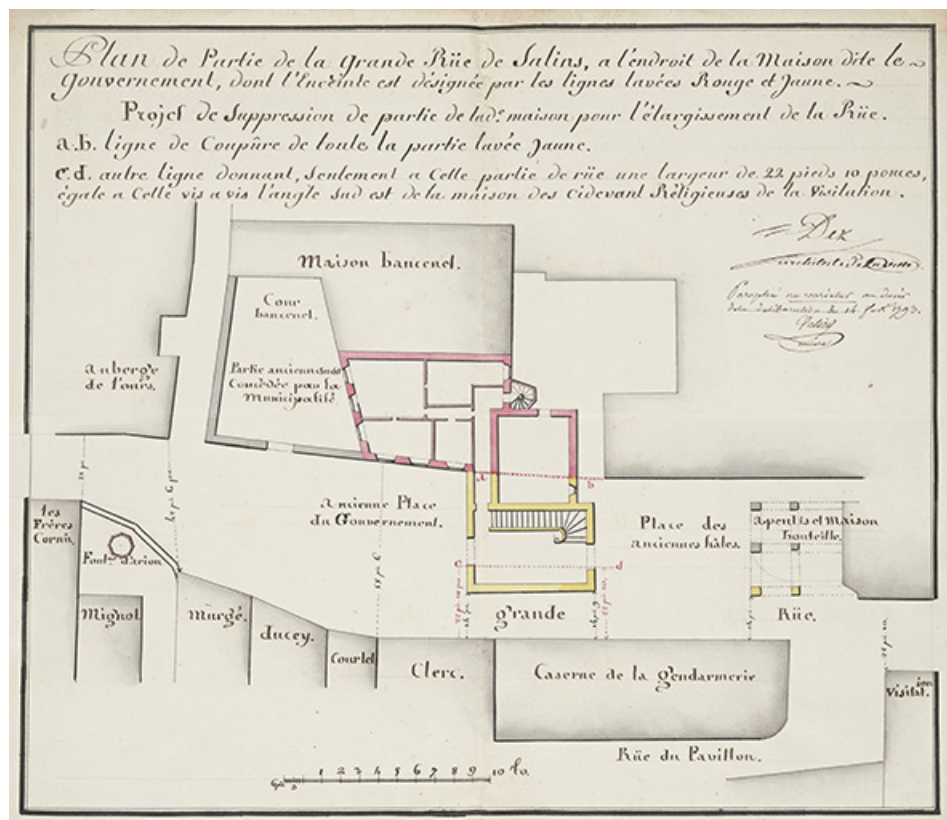 Plan de Partie de la Grande Rüe de Salins, a l'endroit de la Maison dite le
Gouvernement, dont l'Enceinte est désignée par les lignes lavées Rouge et Jaune.
Projet de Suppression de partie de lad.e maison pour l'élargissement de la Rüe.
a.b. ligne de Coupûre de toute la partie lavée Jaune.
c.d. autre ligne donnant, seulement a Cette partie de rüe une largeur de 22 pieds 10 pouces,
égale a Celle vis a vis l'angle sud est de la maison des cidevant Réligieuses de la Visitation.
Dez
architecte
Paraphé ne varietur au desir
de la deliberation du 14.
Maison bancenel.
Cour
bancenel.
Partie
Concédée par la
Municipalité.
auberge
de l'ours.
a
b
ancienne Place
du Gouvernement.
Place des
anciennes hâles.
apentis et Maison
les
Frères
Cornu
Font. d'arion
c
d
grande
Rüe.
Mignot
Murgé.
ducey.
Courlet
Clerc.
Caserne de la gendarmerie
Visitat.ion
Rüe du Pavillon.
1 2 3 4 5 6 7 8 9 10 to.